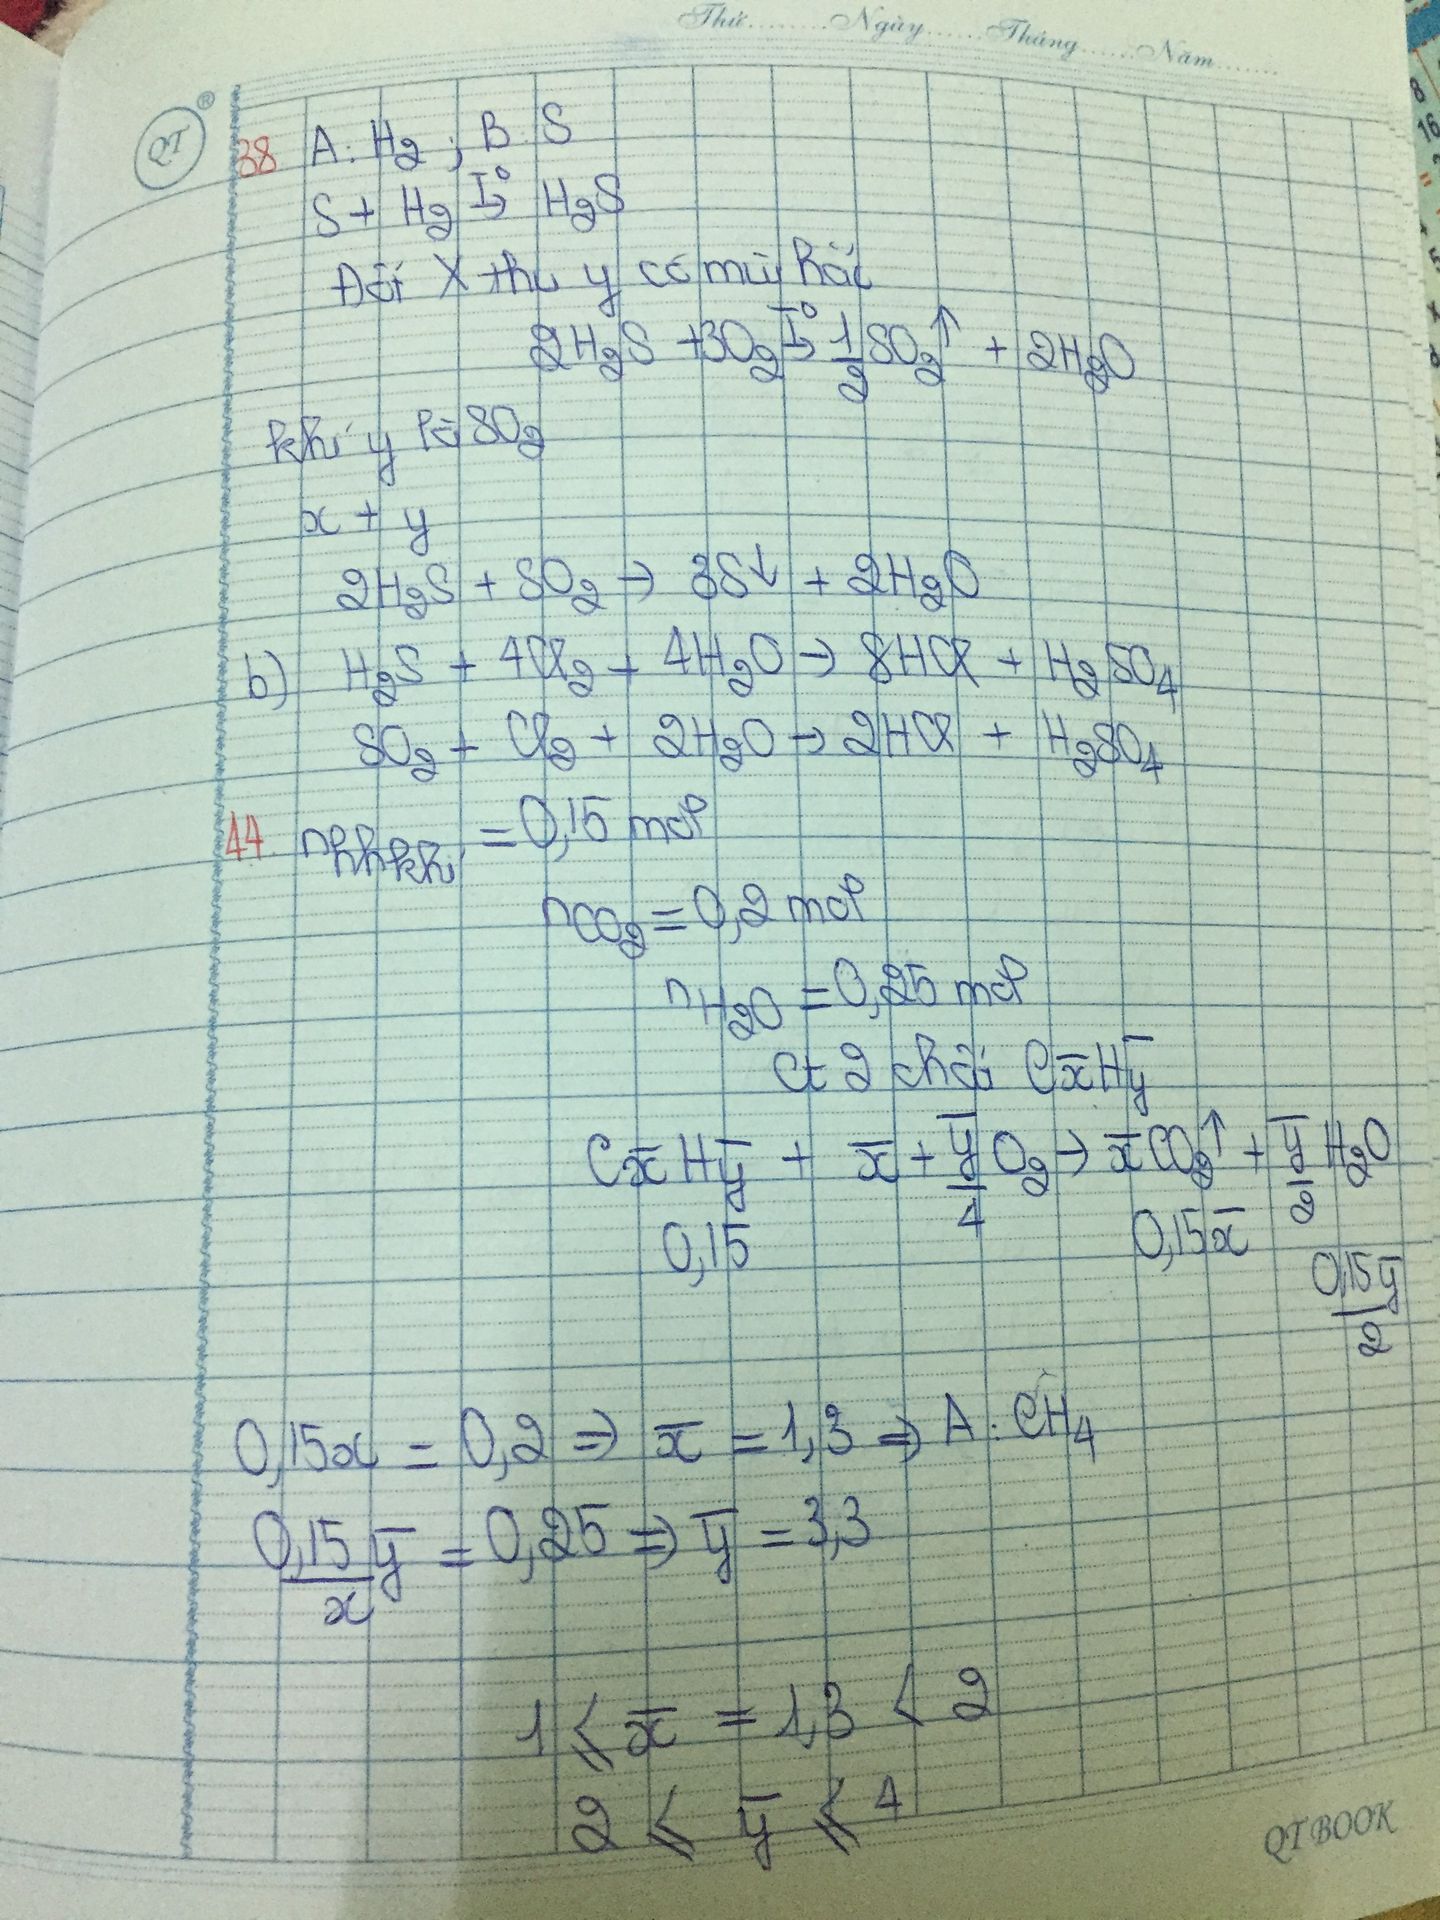 Thứ.........Ngày......Tháng......Năm.......
QT ®
38 A: H₂ ; B: S
S + H₂ →(T°) H₂S
Đốt X thu y có mùi hắc
2H₂S + 3O₂ →(T°) 1/2 SO₂↑ + 2H₂O
khí y là SO₂
x + y
2H₂S + SO₂ → 3S↓ + 2H₂O
b) H₂S + 4Cl₂ + 4H₂O → 8HCl + H₂SO₄
SO₂ + Cl₂ + 2H₂O → 2HCl + H₂SO₄
44 nhhkhí = 0,15 mol
nCO₂ = 0,2 mol
nH₂O = 0,25 mol
Ct 2 chất Cx̄Hȳ
Cx̄Hȳ + x̄ + ȳ/4 O₂ → x̄CO₂↑ + ȳ/2 H₂O
0,15 0,15x̄ 0,15ȳ/2
0,15x = 0,2 ⇒ x̄ = 1,3 ⇒ A: CH₄
0,15/x ȳ = 0,25 ⇒ ȳ = 3,3
1 ≤ x̄ = 1,3 < 2
2 ≤ ȳ ≤ 4
QT BOOK